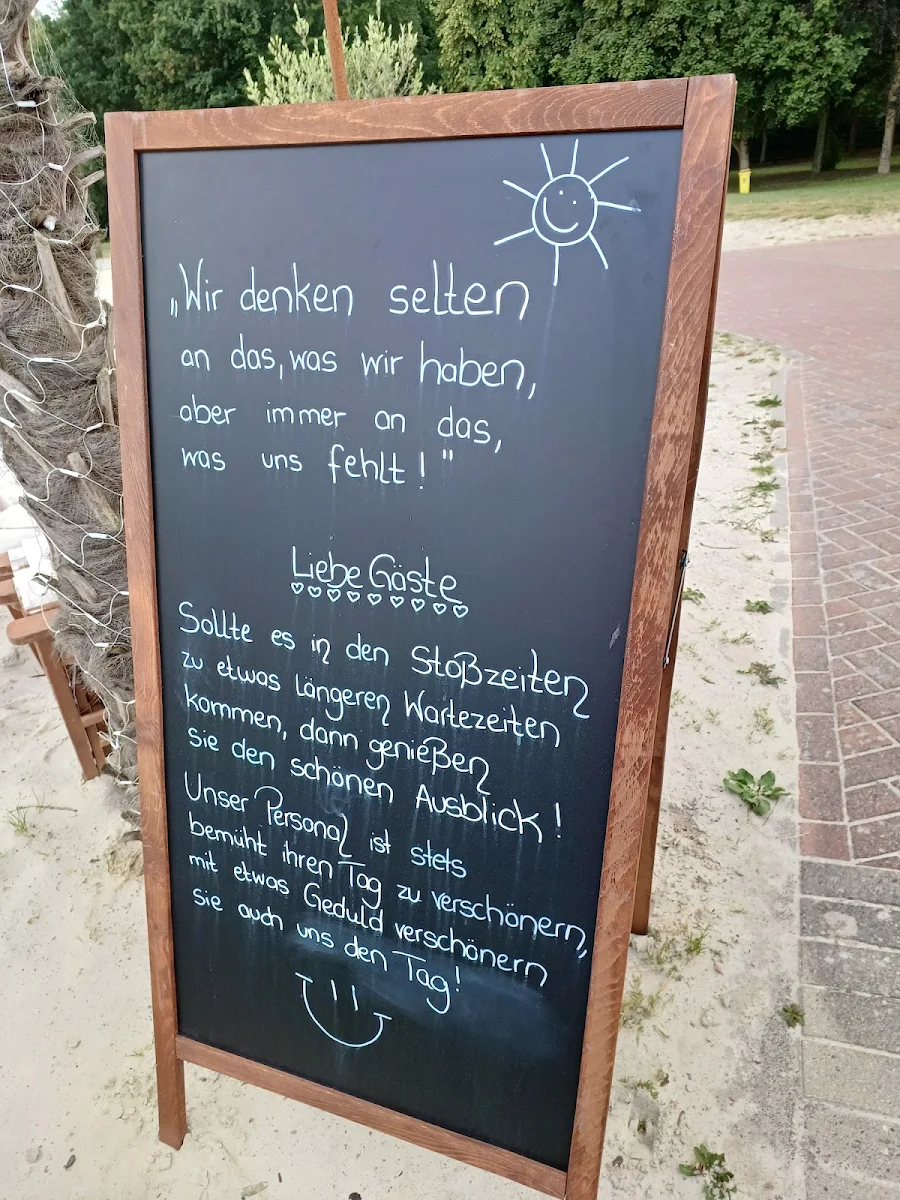 „Wir denken selten
an das, was wir haben,
aber immer an das,
was uns fehlt!"
Liebe Gäste
Sollte es in den Stoßzeiten
zu etwas Längeren Wartezeiten
kommen, dann genießen
sie den schönen Ausblick!
Unser Personal ist stets
bemüht ihren Tag zu verschönern,
mit etwas Geduld verschönern
sie auch uns den Tag!